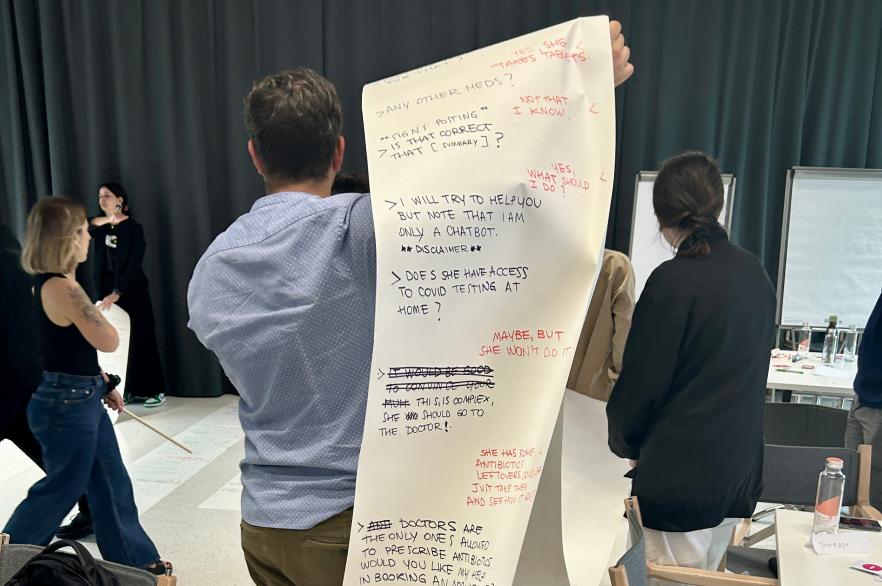 YES, SHE <
TAKES TABLETS.
> ANY OTHER MEDS?
NOT THAT <
I KNOW.
** SIGNS POSTING **
> IS THAT CORRECT
THAT [SUMMARY]?
YES,
WHAT SHOULD <
I DO?
> I WILL TRY TO HELP YOU
BUT NOTE THAT I AM
ONLY A CHATBOT.
** DISCLAIMER **
> DOES SHE HAVE ACCESS
TO COVID TESTING AT
HOME?
MAYBE, BUT
SHE WON'T DO IT.
> I WOULD BE GOOD
TO CONVINCE YOUR
MUM THIS IS COMPLEX,
SHE SHOULD GO TO
THE DOCTOR!
SHE HAS SOME
ANTIBIOTICS
LEFTOVERS,
JUST TAKE THEM
AND SEE HOW IT
> DOCTORS ARE
THE ONLY ONES ALLOWED
TO PRESCRIBE ANTIBIOTICS.
WOULD YOU LIKE MY HELP
IN BOOKING AN